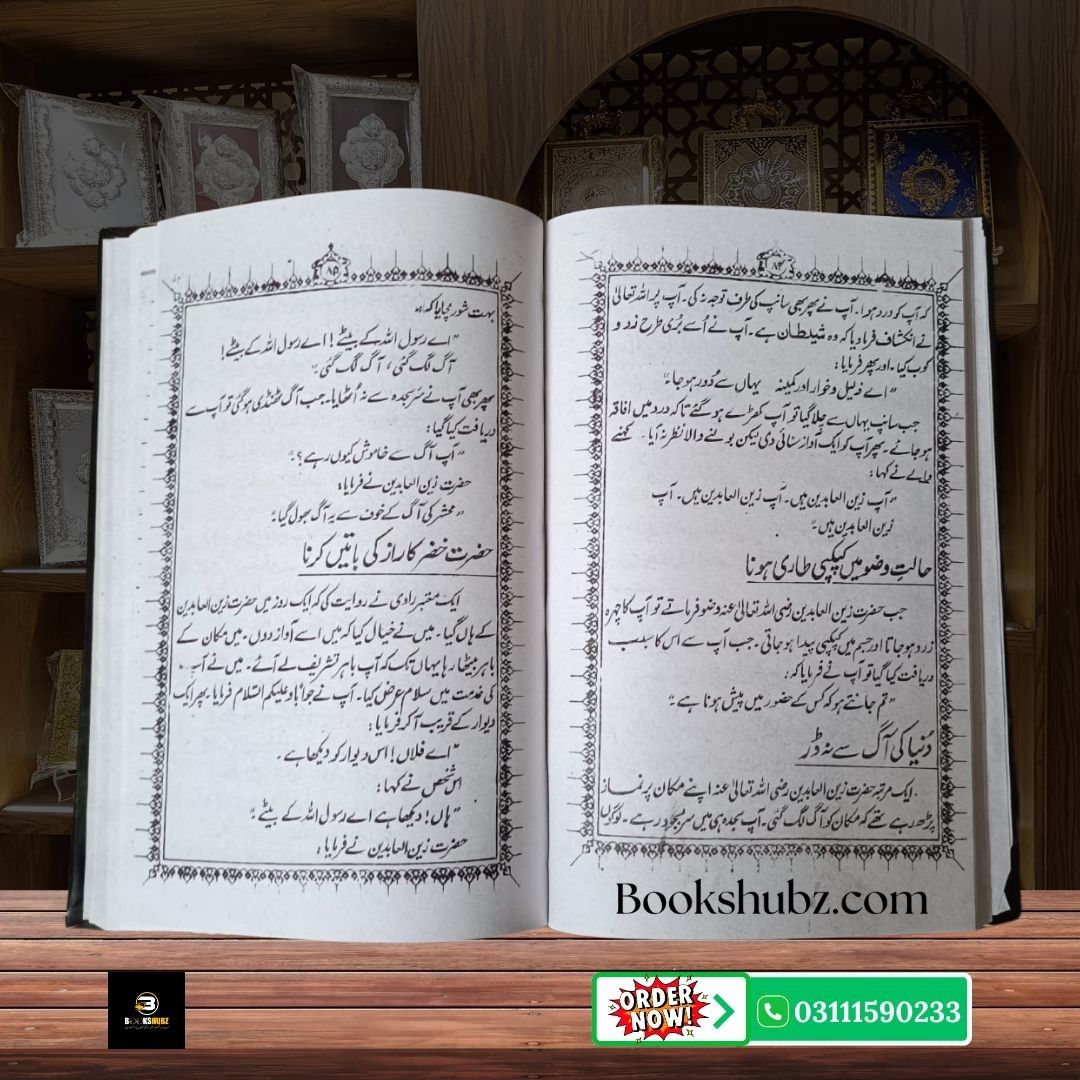 ۸۴
کہ آپ کو درد ہوا۔ آپ نے پھر بھی سانپ کی طرف توجہ نہ کی۔ آپ پر اللہ تعالیٰ
نے انکشاف فرما دیا کہ وہ شیطان ہے۔ آپ نے اُسے بُری طرح زد و
کوب کیا۔ اور پھر فرمایا :
"اے ذلیل و خوار اور کمینہ یہاں سے دُور ہو جا۔"
جب سانپ یہاں سے چلا گیا تو آپ کھڑے ہو گئے تاکہ درد میں افاقہ
ہو جائے۔ پھر آپ کو ایک آواز سنائی دی لیکن بولنے والا نظر نہ آیا۔ کہنے
والے نے کہا :
"آپ زین العابدین ہیں۔ آپ زین العابدین ہیں۔ آپ
زین العابدین ہیں۔"
حالتِ وضو میں کپکپی طاری ہونا
جب حضرت زین العابدین رضی اللہ تعالیٰ عنہ وضو فرماتے تو آپ کا چہرہ
زرد ہو جاتا اور جسم میں کپکپی پیدا ہو جاتی۔ جب آپ سے اس کا سبب
دریافت کیا گیا تو آپ نے فرمایا کہ :
"تم جانتے ہو کہ کس کے حضور میں پیش ہونا ہے۔"
دُنیا کی آگ سے نہ ڈر
ایک مرتبہ حضرت زین العابدین رضی اللہ تعالیٰ عنہ اپنے مکان پر نماز
پڑھ رہے تھے کہ مکان کو آگ لگ گئی۔ آپ سجدہ ہی میں سر بسجود رہے۔ لوگوں نے
۸۵
بہت شور مچایا کہ :
"اے رسول اللہ کے بیٹے! اے رسول اللہ کے بیٹے!
آگ لگ گئی، آگ لگ گئی۔"
پھر بھی آپ نے سَر سجدہ سے نہ اُٹھایا۔ جب آگ ٹھنڈی ہو گئی تو آپ سے
دریافت کیا گیا :
"آپ آگ سے خاموش کیوں رہے؟"
حضرت زین العابدین نے فرمایا :
"محشر کی آگ کے خوف سے یہ آگ بھول گیا۔"
حضرت خضر کا راز کی باتیں کرنا
ایک معتبر راوی نے روایت کی کہ ایک روز میں حضرت زین العابدین
کے ہاں گیا۔ میں نے خیال کیا کہ میں اسے آواز دوں۔ میں مکان کے
باہر بیٹھا رہا یہاں تک کہ آپ باہر تشریف لے آئے۔ میں نے آپ
کی خدمت میں سلام عرض کیا۔ آپ نے جواباً وعلیکم السّلام فرمایا پھر ایک
دیوار کے قریب آ کر فرمایا :
"اے فلاں! اس دیوار کو دیکھا ہے۔
اس شخص نے کہا :
"ہاں! دیکھا ہے اے رسول اللہ کے بیٹے۔"
حضرت زین العابدین نے فرمایا :
Bookshubz.com
BOOKSHUBZ
ORDER NOW!
03111590233